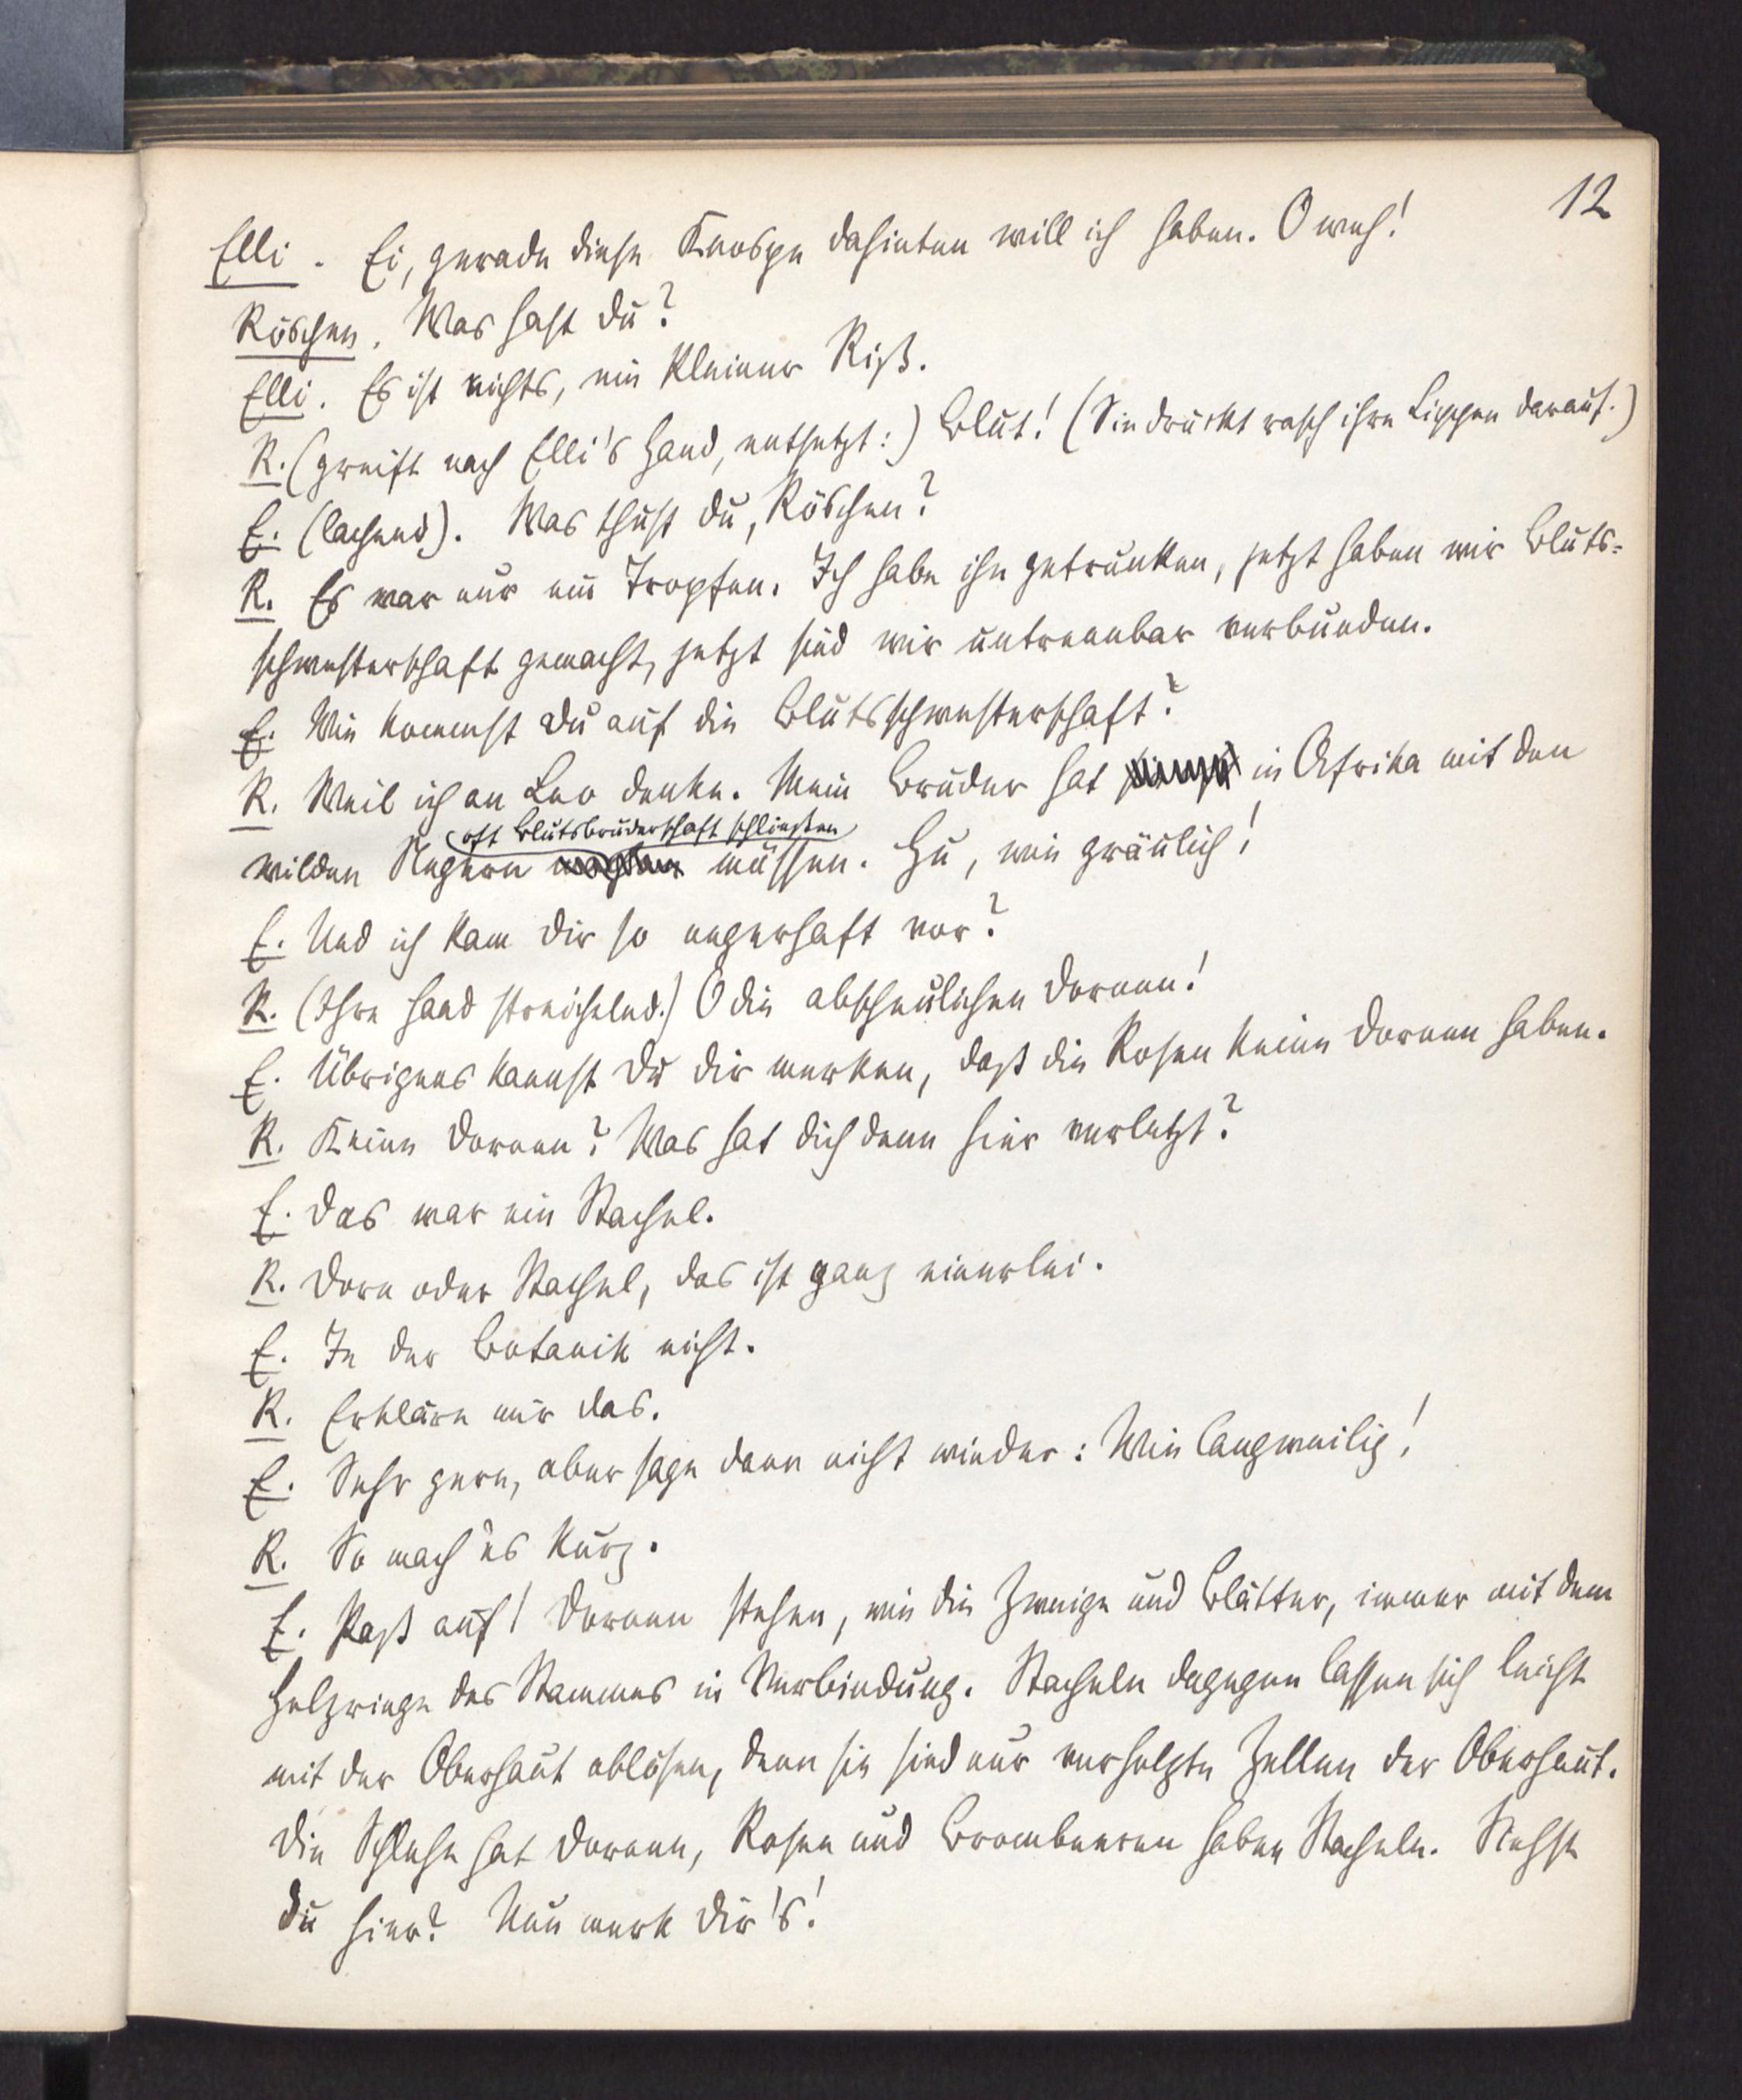 12
Elli. Ei, gerade diese Knospe dahinten will ich haben. O weh!
Röschen. Was hast du?
Elli. Es ist nichts, ein kleiner Riß.
R. (greift nach Elli's Hand, entsetzt:) Blut! (Sie drückt rasch ihre Lippen darauf.)
E. (lachend). Was thust du, Röschen?
R. Es war nur ein Tropfen. Ich habe ihn getrunken, jetzt haben wir Bluts-
schwesterschaft gemacht, jetzt sind wir untrennbar verbunden.
E. Wie kommst du auf die Blutsschwesterschaft?
R. Weil ich an Leo denke. Mein Bruder hat in Afrika mit den
oft Blutsbruderschaft schließen
wilden Negern müssen. Hu, wie gräulich!
E. Und ich kam dir so negerhaft vor?
R. (Ihre Hand streichelnd.) O die abscheulichen Dornen!
E. Übrigens kannst du dir merken, daß die Rosen keine Dornen haben.
R. Keine Dornen? Was hat dich denn hier verletzt?
E. Das war ein Stachel.
R. Dorn oder Stachel, das ist ganz einerlei.
E. In der Botanik nicht.
R. Erkläre mir das.
E. Sehr gern, aber sage dann nicht wieder: Wie langweilig!
R. So mach es kurz.
E. Paß auf! Dornen stehen, wie die Zweige und Blätter, immer mit dem
Holzringe des Stammes in Verbindung. Stacheln dagegen lassen sich leicht
mit der Oberhaut ablösen, denn sie sind nur verholzte Zellen der Oberhaut.
Die Schlehe hat Dornen, Rosen und Brombeeren haben Stacheln. Siehst
du hier? Nun merk dir's!